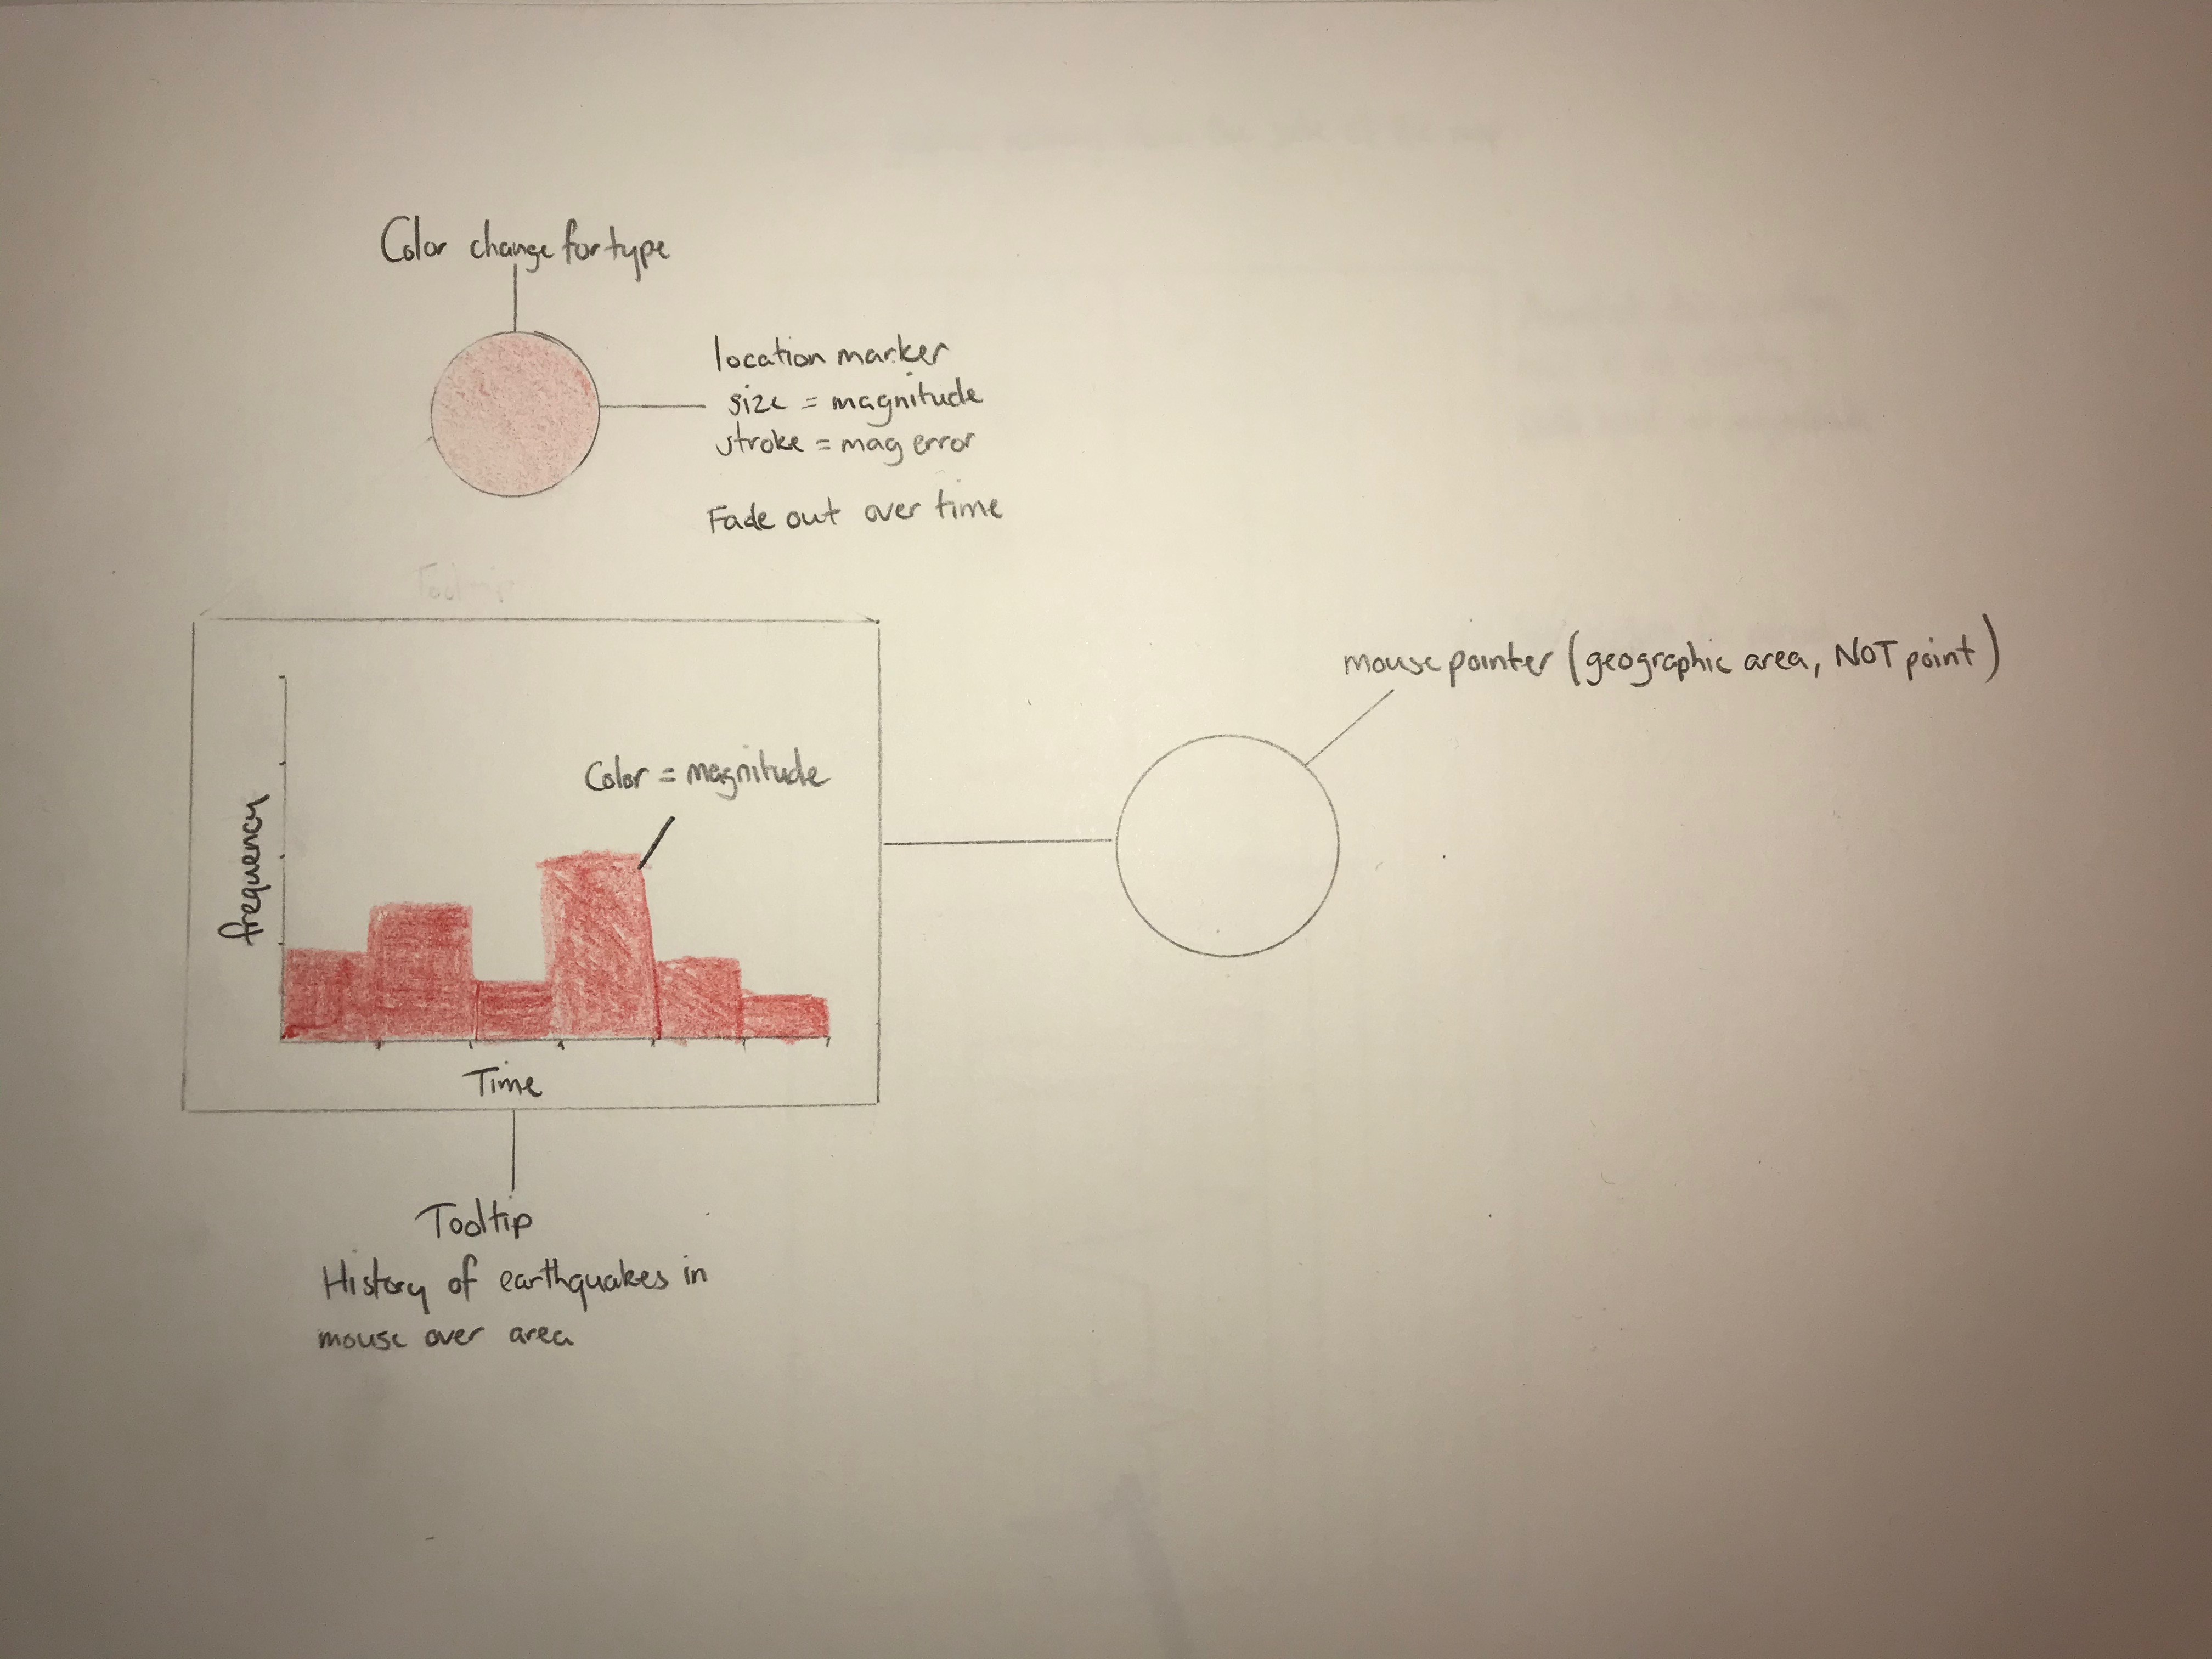 Color change for type
location marker
size = magnitude
stroke = mag error
Fade out over time
mouse pointer (geographic area, NOT point)
Color = magnitude
frequency
Time
Tooltip
History of earthquakes in
mouse over area